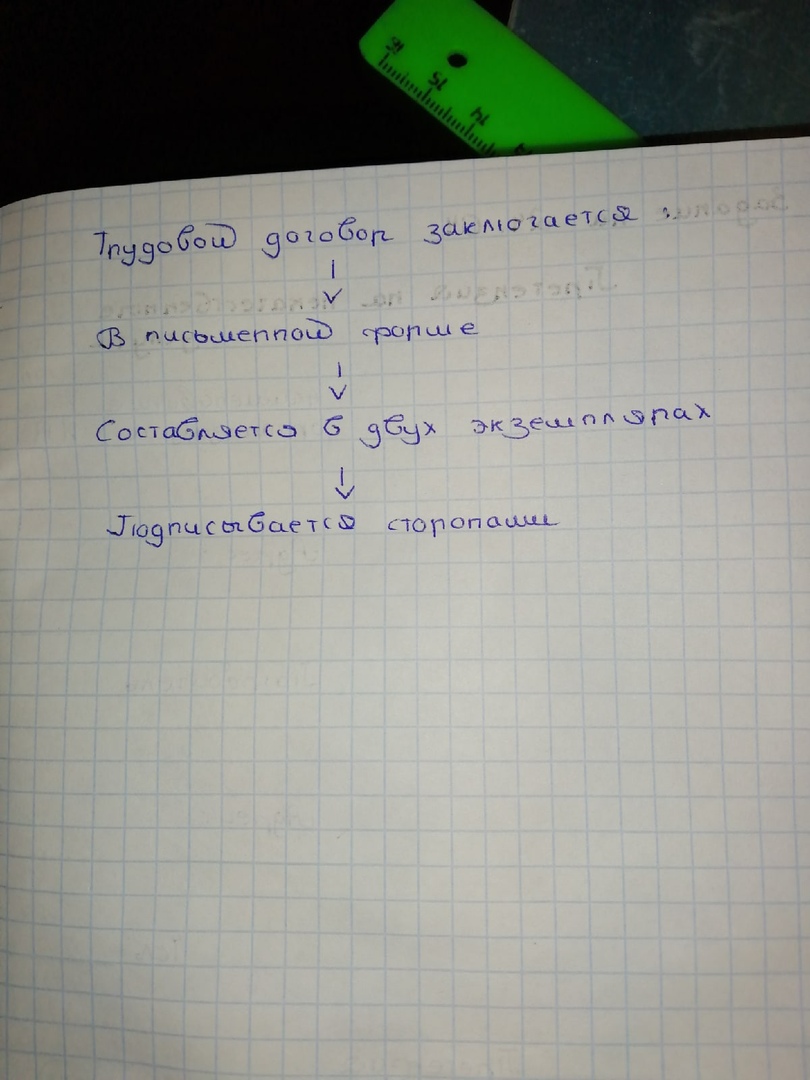 16
15
14
Трудовой договор заключается :
В письменной форме
Составляется в двух экземплярах
Подписывается сторонами